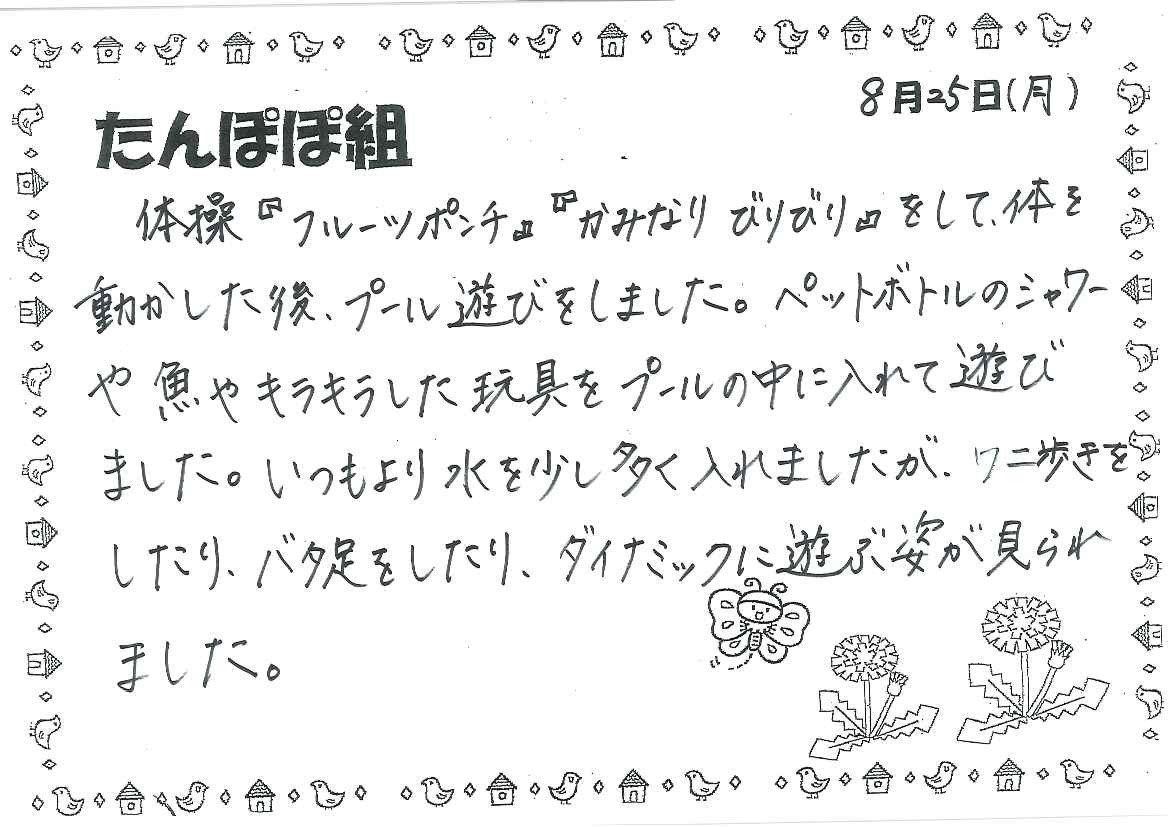 8月25日(月)
たんぽぽ組
体操『フルーツポンチ』『かみなりびりびり』をして、体を
動かした後、プール遊びをしました。ペットボトルのシャワー
や魚やキラキラした玩具をプールの中に入れて遊び
ました。いつもより水を少し多く入れましたが、ワニ歩きを
したり、バタ足をしたり、ダイナミックに遊ぶ姿が見られ
ました。